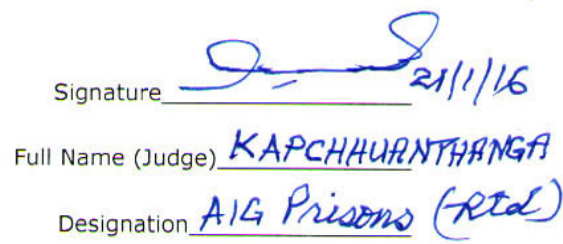 Signature 21/1/16
Full Name (Judge) KAPCHHUANTHANGA
Designation AIG Prisons (Rtd)